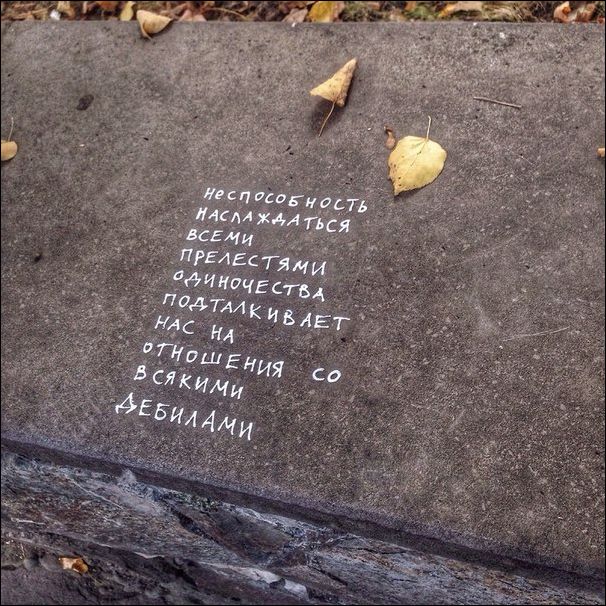 неспособность
наслаждаться
всеми
прелестями
одиночества
подталкивает
нас на
отношения со
всякими
дебилами